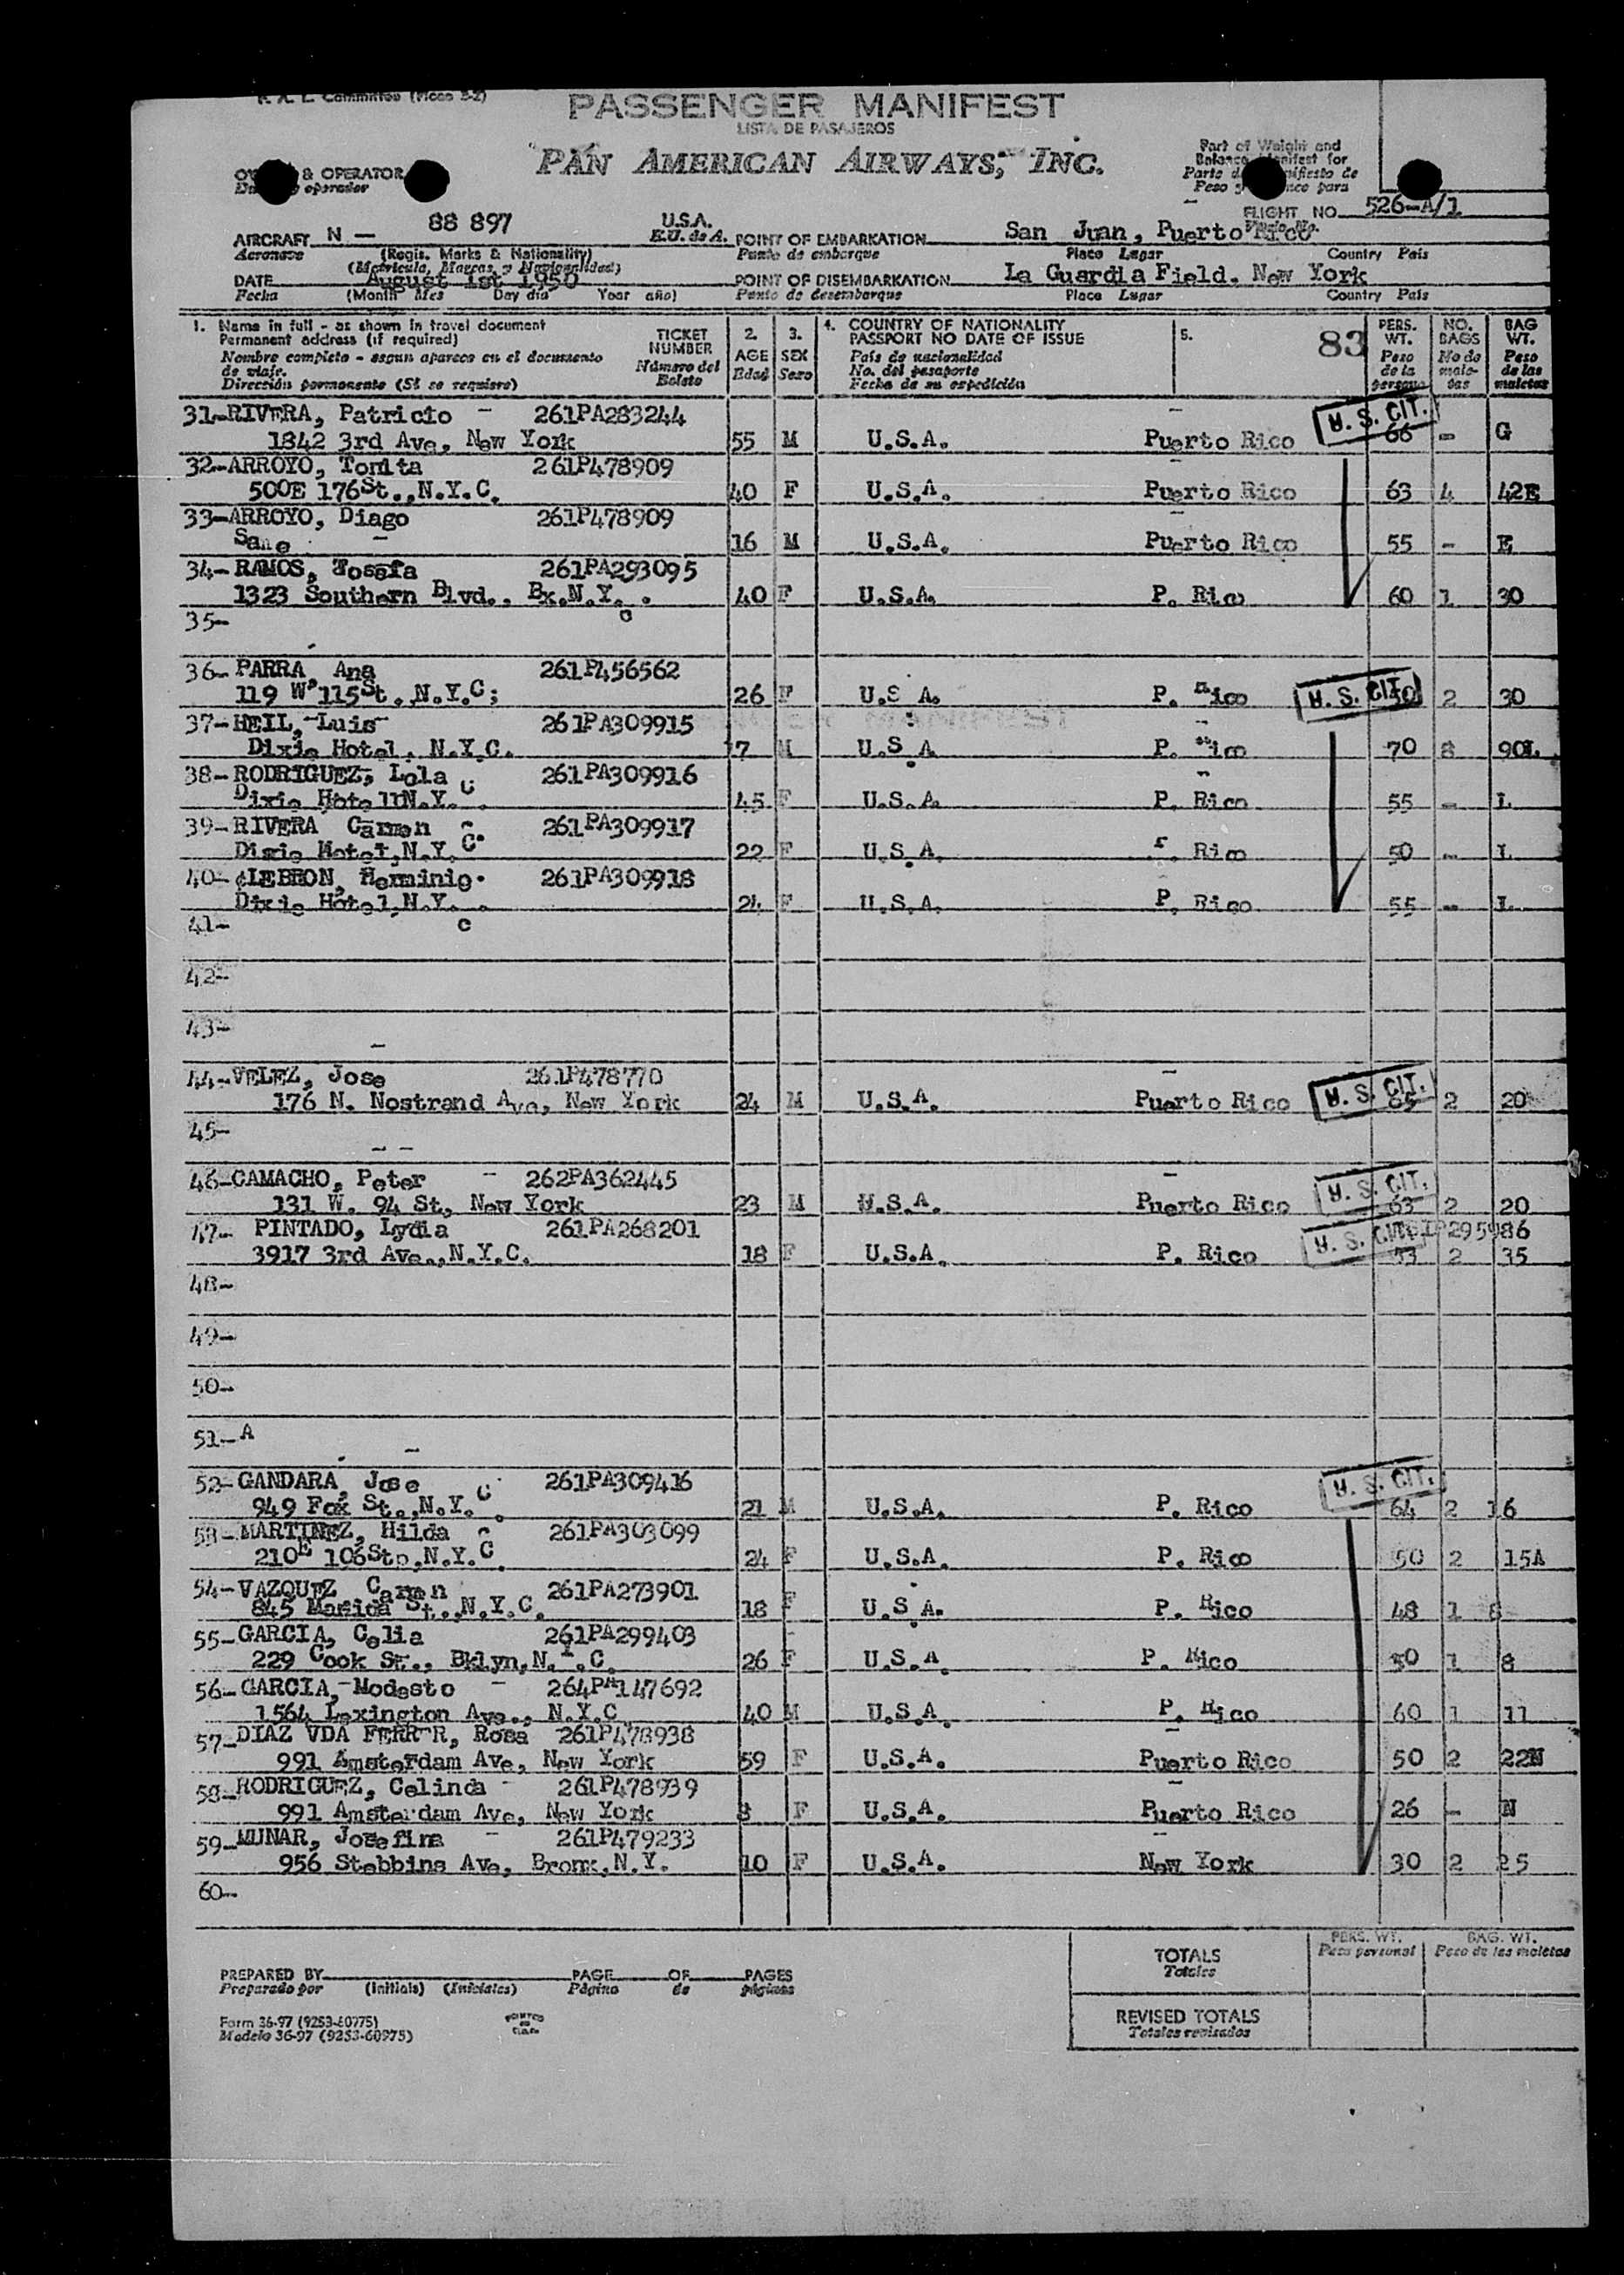 PASSENGER MANIFEST
LISTA DE PASAJEROS
PAN AMERICAN AIRWAYS, INC.
Part of Weight and
Balance Manifest for
Parte de Manifiesto de
Peso y para
& OPERATOR
operador
FLIGHT NO. 526-A/1
AIRCRAFT N — 88 897 U.S.A.
Aeronave (Regis. Marks & Nationality) E.U. de A.
(Matricula, Marcas, y Nacionalidad)
POINT OF EMBARKATION San Juan, Puerto Rico
Punto de embarque Place Lugar Country Pais
DATE August 1st 1950
Fecha (Month Mes Day dia Year año)
POINT OF DISEMBARKATION La Guardia Field, New York
Punto de desembarque Place Lugar Country Pais
1. Name in full - as shown in travel document
Permanent address (if required)
Nombre completo - segun aparece en el documento
de viaje.
Dirección permanente (Si se requiere)
TICKET
NUMBER
Número del
Boleto
2.
AGE
Edad
3.
SEX
Sexo
4. COUNTRY OF NATIONALITY
PASSPORT NO DATE OF ISSUE
País de nacionalidad
No. del pasaporte
Fecha de su expedición
5.
83
PERS.
WT.
Peso
de la
persona
NO.
BAGS
No de
male-
tas
BAG
WT.
Peso
de las
maletas
31-RIVERA, Patricio - 261PA283244 U. S. CIT.
1842 3rd Ave, New York 55 M U.S.A. Puerto Rico 66 - G
32-ARROYO, Tonita 261P478909
500E 176St.,N.Y.C. 40 F U.S.A. Puerto Rico 63 4 42E
33-ARROYO, Diago 261P478909
Same 16 M U.S.A. Puerto Rico 55 - E
34-RAMOS, 261PA293095
1323 Southern Blvd., Bx.N.Y. 40 F U.S.A. P. Rico 60 1 30
35-
36-PARRA, Ana 261P456562
119 W 115St.,N.Y.C; 26 F U.S.A. P. Rico U. S. CIT. 2 30
37-HEIL, Luis 261PA309915
Dixie Hotel, N.Y.C. 7 M U.S.A. P. Rico 70 8 90L
38-RODRIGUEZ, Lola 261PA309916
Dixie Hotel N.Y.C. 45 F U.S.A. P. Rico 55 - L
39-RIVERA Carmen 261PA309917
Dixie Hotel,N.Y.C. 22 F U.S.A. P. Rico 50 - L
40-LEBRON, Herminio. 261PA309918
Dixie Hotel,N.Y. 24 F U.S.A. P. Rico 55 - L
41- c
42-
43-
44-VELEZ, Jose 261P478770
176 N. Nostrand Ave, New York 24 M U.S.A. Puerto Rico U. S. CIT. 2 20
45-
46-CAMACHO, Peter - 262PA362445 U. S. CIT.
131 W. 94 St, New York 23 M U.S.A. Puerto Rico 63 2 20
47- PINTADO, Lydia 261PA268201 U. S. CIT.
3917 3rd Ave.,N.Y.C. 18 F U.S.A. P. Rico 2 35
48-
49-
50-
51-A
52-GANDARA, Jose 261PA309416 U. S. CIT.
949 Fox St.,N.Y.C. 21 M U.S.A. P. Rico 64 2 16
53-MARTINEZ, Hilda 261PA303099
210E 106St.,N.Y.C. 24 F U.S.A. P. Rico 50 2 15A
54-VAZQUEZ Carmen 261PA273901
845 St.,N.Y.C. 18 F U.S.A. P. Rico 48 1 8
55-GARCIA, Celia 261PA299403
229 Cook St., Bklyn,N.Y.C. 26 F U.S.A. P. Rico 50 1 8
56-GARCIA, Modesto - 264PA147692
1564 Lexington Ave., N.Y.C 40 M U.S.A. P. Rico 60 1 11
57-DIAZ VDA FERRER, Rosa 261P478938
991 Amsterdam Ave, New York 59 F U.S.A. Puerto Rico 50 2 22N
58-RODRIGUEZ, Celinda - 261P478939
991 Amsterdam Ave, New York 8 F U.S.A. Puerto Rico 26 - N
59-MUNAR, Josefina - 261P479233
956 Stebbins Ave, Bronx,N.Y. 10 F U.S.A. New York 30 2 25
60-
PREPARED BY PAGE OF PAGES
Preparado por (Initials) (Iniciales) Página de páginas
TOTALS
Totales
PERS. WT.
Peso personal
BAG. WT.
Peso de las maletas
REVISED TOTALS
Totales revisados
Form 36-97 (9253-60975)
Modelo 36-97 (9253-60975)